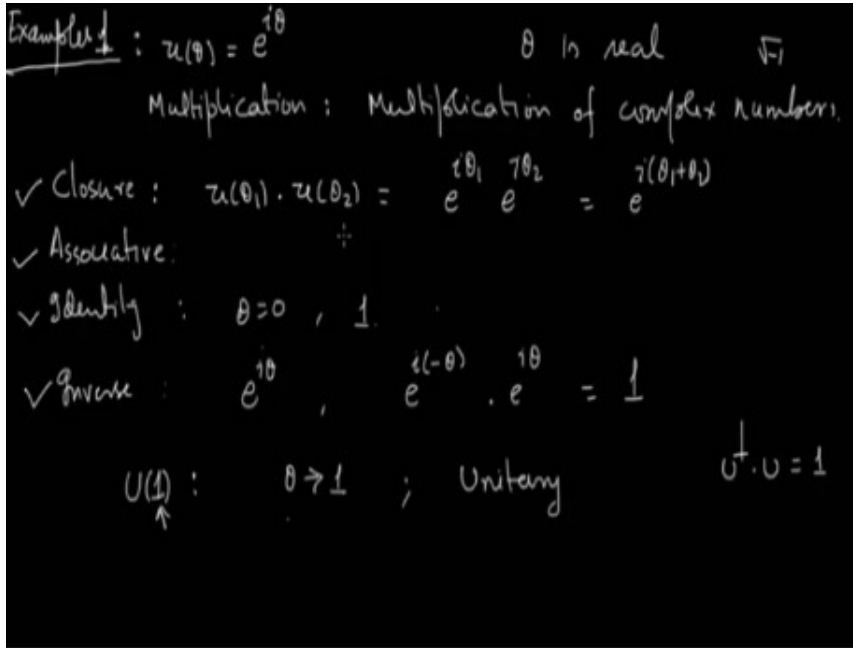 Example 1 : u(θ) = e^{iθ} θ is real √-1
Multiplication : Multiplication of complex numbers.
✓ Closure : u(θ₁) . u(θ₂) = e^{iθ₁} e^{iθ₂} = e^{i(θ₁+θ₂)}
✓ Associative :
✓ Identity : θ=0 , 1
✓ Inverse : e^{iθ} , e^{i(-θ)} . e^{iθ} = 1
U(1) : θ → 1 ; Unitary U† . U = 1
↑